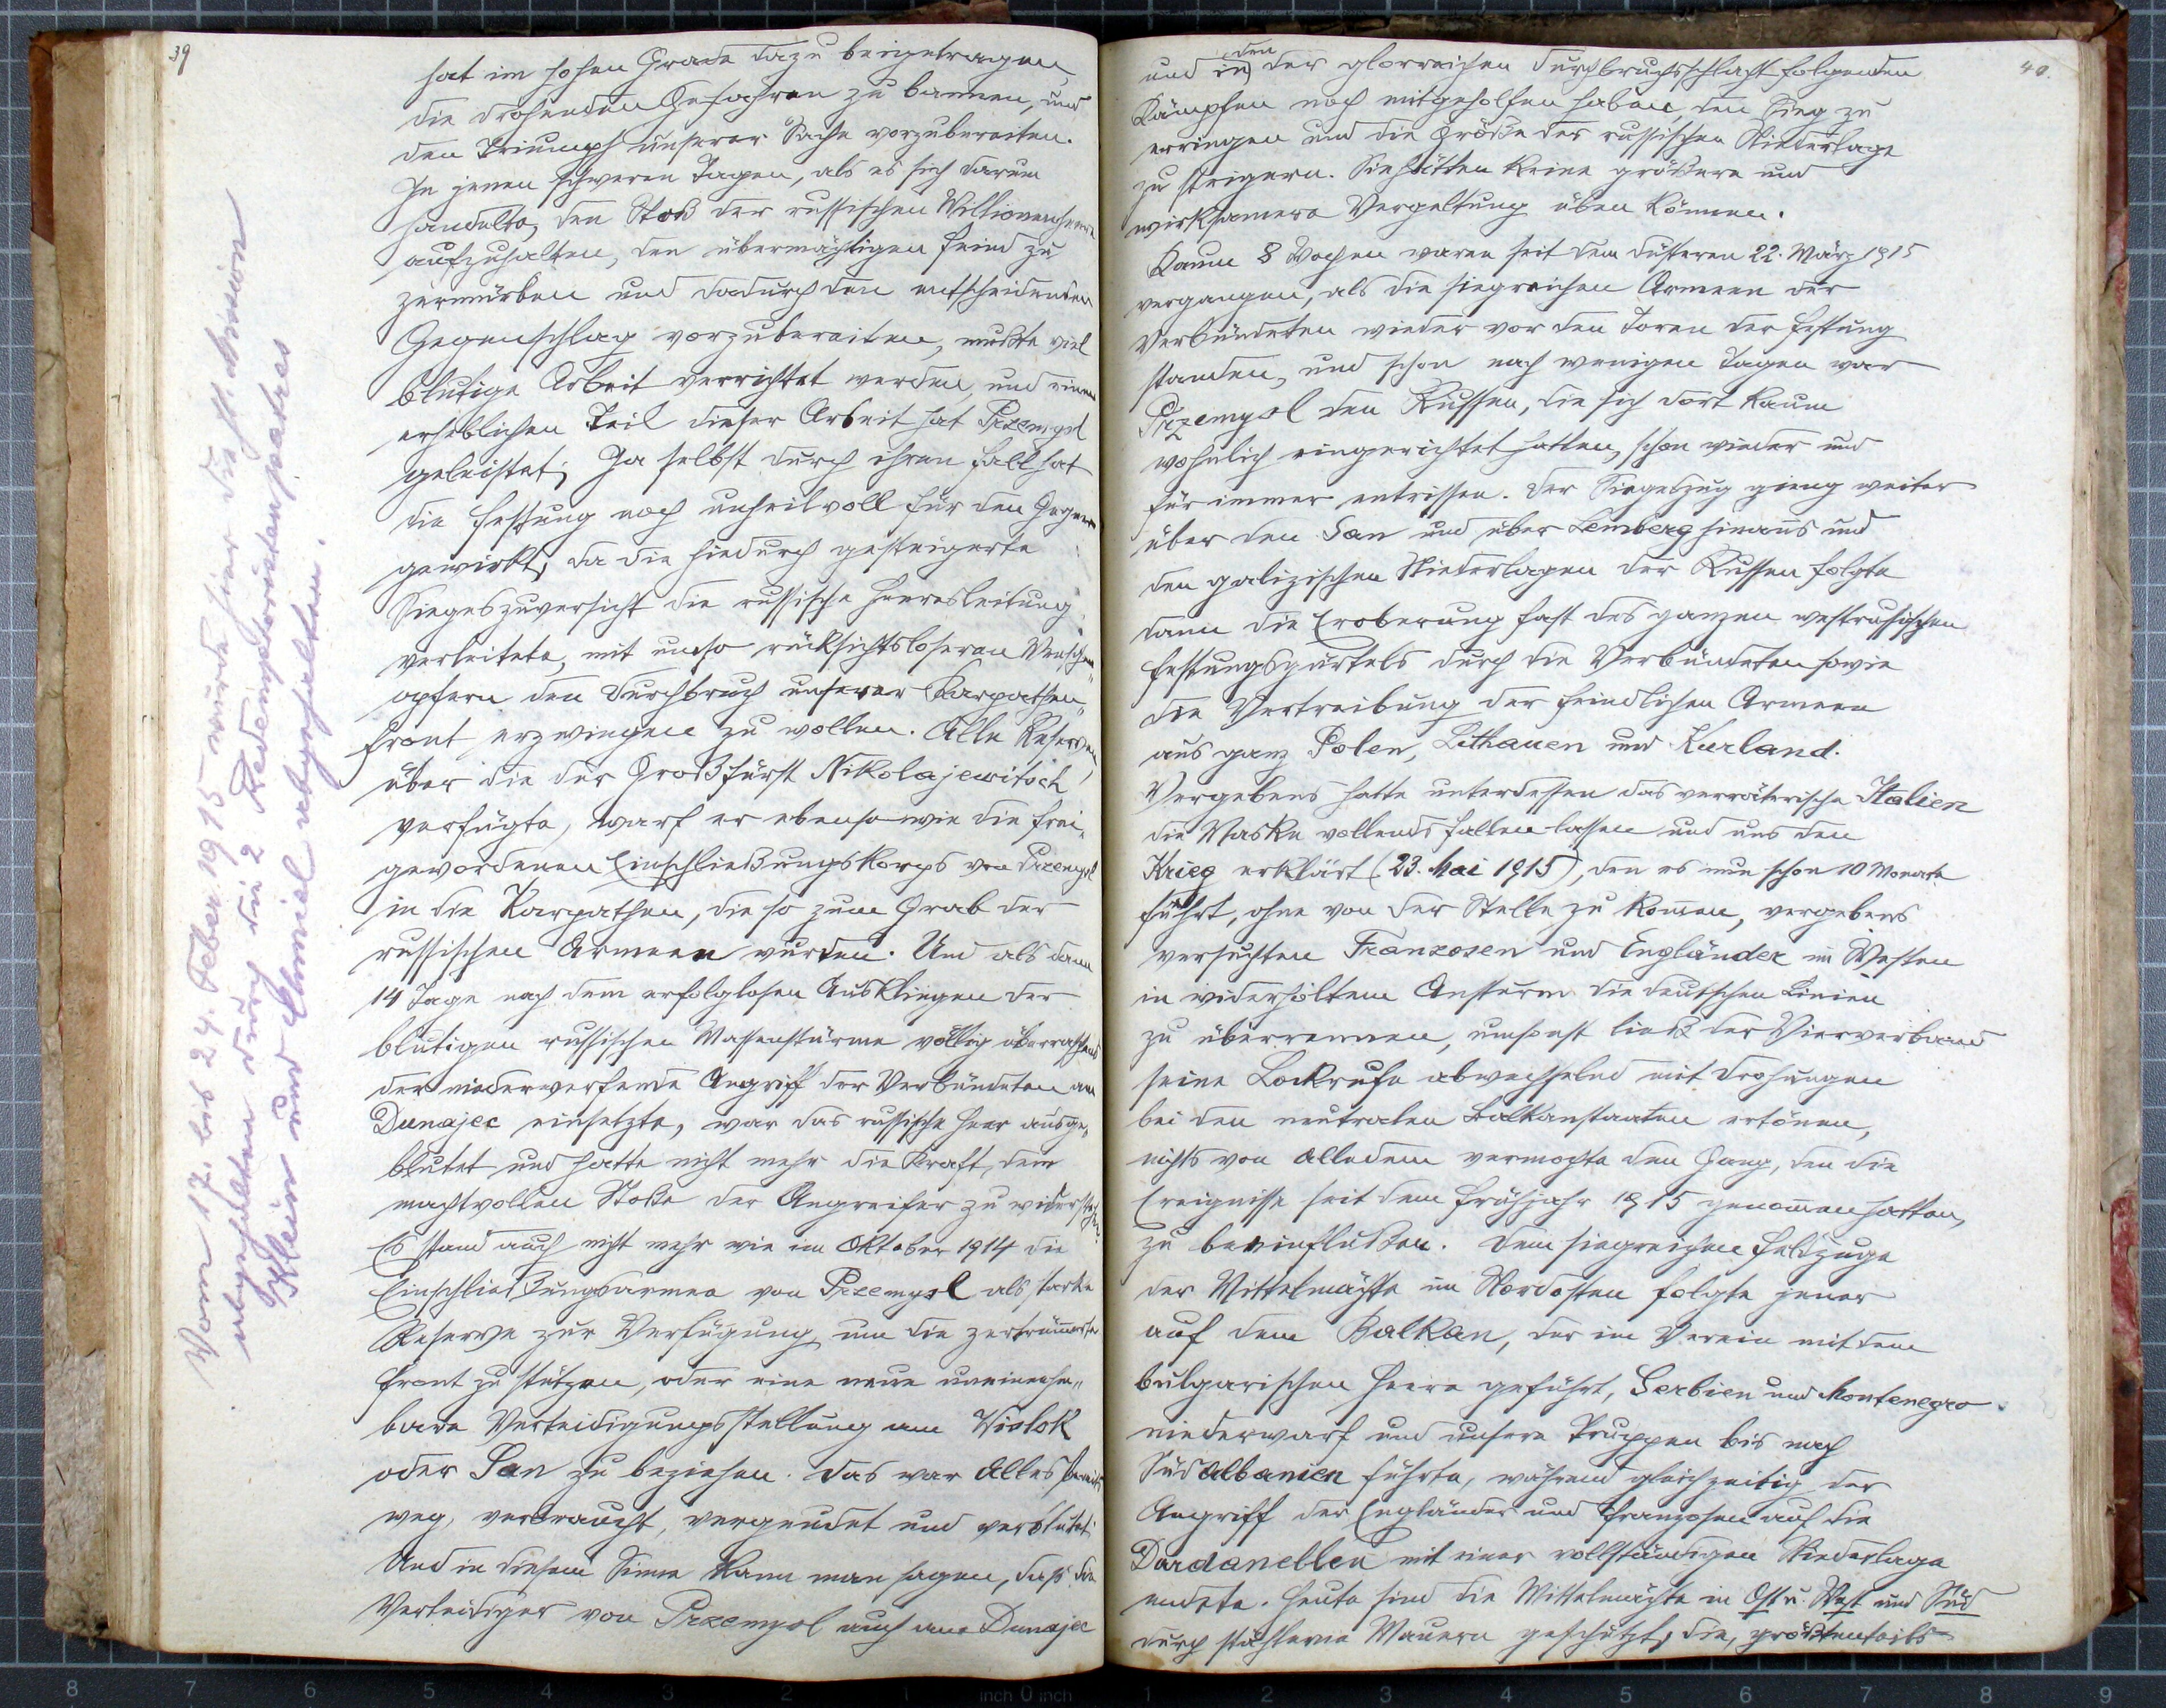 39
hat im hohen Grade dazu beigetragen,
die drohenden Gefahren zu bannen, und
den Triumph unserer Sache vorzubereiten.
In jenen schweren Tagen, als es sich darum
handelte, den Stoß der russischen Millionenheere
aufzuhalten, den übermächtigen Feind zu
zermürben und dadurch den entscheidenden
Gegenschlag vorzubereiten, mußte viel
blutige Arbeit verrichtet werden, und einen
erheblichen Teil dieser Arbeit hat Przemysl
geleistet; Ja selbst durch ihren Fall hat
die Festung noch unheilvoll für den Gegner
gewirkt, da die hiedurch gesteigerte
Siegeszuversicht die russische Heeresleitung
verleitete, mit umso rücksichtsloseren Menschen„
opfern den Durchbruch unserer Karpathen„
front erzwingen zu wollen. Alle Reserven,
über die der Großfürst Nikolajewitsch
verfügte, warf er ebenso wie die frei„
gewordenen Einschließungskorps von Przemysl
in die Karpathen, die so zum Grab der
russischen Armeen wurden. Und als dann
14 Tage nach dem erfolglosen Ausklingen der
blutigen russischen Massenstürme völlig überraschend
der niederwerfende Angriff der Verbündeten am
Dunajec einsetzte, war das russische Heer ausge„
blutet und hatte nicht mehr die Kraft, dem
machtvollen Stoße der Angreifer zu widerstehen.
Es stand auch nicht mehr wie im Oktober 1914 die
Einschließungsarmee von Przemysl als starke
Reserve zur Verfügung um die zertrümmerte
Front zu stützen, oder eine neue uneinnehm„
bare Verteidigungsstellung am Wislok
oder San zu beziehen. Das war Alles bereits
weg, verbraucht, vergeudet und verblutet.
Und in diesem Sinne kann man sagen, daß die
Verteidiger von Przemysl auch am Dunajec
Vom 17. bis 24. Feber 1915 wurde hier die hl. Mission
abgehalten durch die 2 Redemptoristenpatres
Klein und Chmiel abgehalten.
40.
den
und in der glorreichen Durchbruchsschlacht folgenden
Kämpfen noch mitgeholfen haben, den Sieg zu
erringen und die Größe der russischen Niederlage
zu steigern. Sie hätten keine größere und
wirksamere Vergeltung üben können.
Kaum 8 Wochen waren seit dem düsteren 22. März 1915
vergangen, als die siegreichen Armeen der
Verbündeten wieder vor den Toren der Festung
standen, und schon nach wenigen Tagen war
Przemysl den Russen, die sich dort kaum
wohnlich eingerichtet hatten, schon wieder und
für immer entrissen. Der Siegeszug gieng weiter
über den San und über Lemberg hinaus und
den galizischen Niederlagen der Russen folgte
dann die Eroberung fast des ganzen westrussischen
Festungsgürtels durch die Verbündeten sowie
die Vertreibung der feindlichen Armeen
aus ganz Polen, Lithauen und Kurland.
Vergebens hatte unterdessen das verräterische Italien
die Maske vollends fallen lassen und uns den
Krieg erklärt (23. Mai 1915), den es nun schon 10 Monate
führt, ohne von der Stelle zu kom̄en, vergebens
versuchten Franzosen und Engländer im Westen
in widerholtem Ansturm die deutschen Linien
zu überrennen, umsonst ließ der Vierverband
seine Lockrufe abwechselnd mit Drohungen
bei den neutralen Balkanstaaten ertönen,
nichts von alledem vermochte den Gang, den die
Ereignisse seit dem Frühjahr 1915 genom̄en hatten,
zu beeinflußen. Dem siegreichen Feldzuge
der Mittelmächte im Nordosten folgte jener
auf dem Balkan, der im Verein mit dem
bulgarischen Heere geführt, Serbien und Montenegro
niederwarf und unsere Truppen bis nach
Südalbanien führte, während gleichzeitig der
Angriff der Engländer und Franzosen auf die
Dardanellen mit einer vollständigen Niederlage
endete. Heute sind die Mittelmächte in Ost u. West und Süd
durch stählerne Mauern geschützt, die, größtenteils
8 7 6 5 4 3 2 1 inch 0 inch 1 2 3 4 5 6 7 8 9